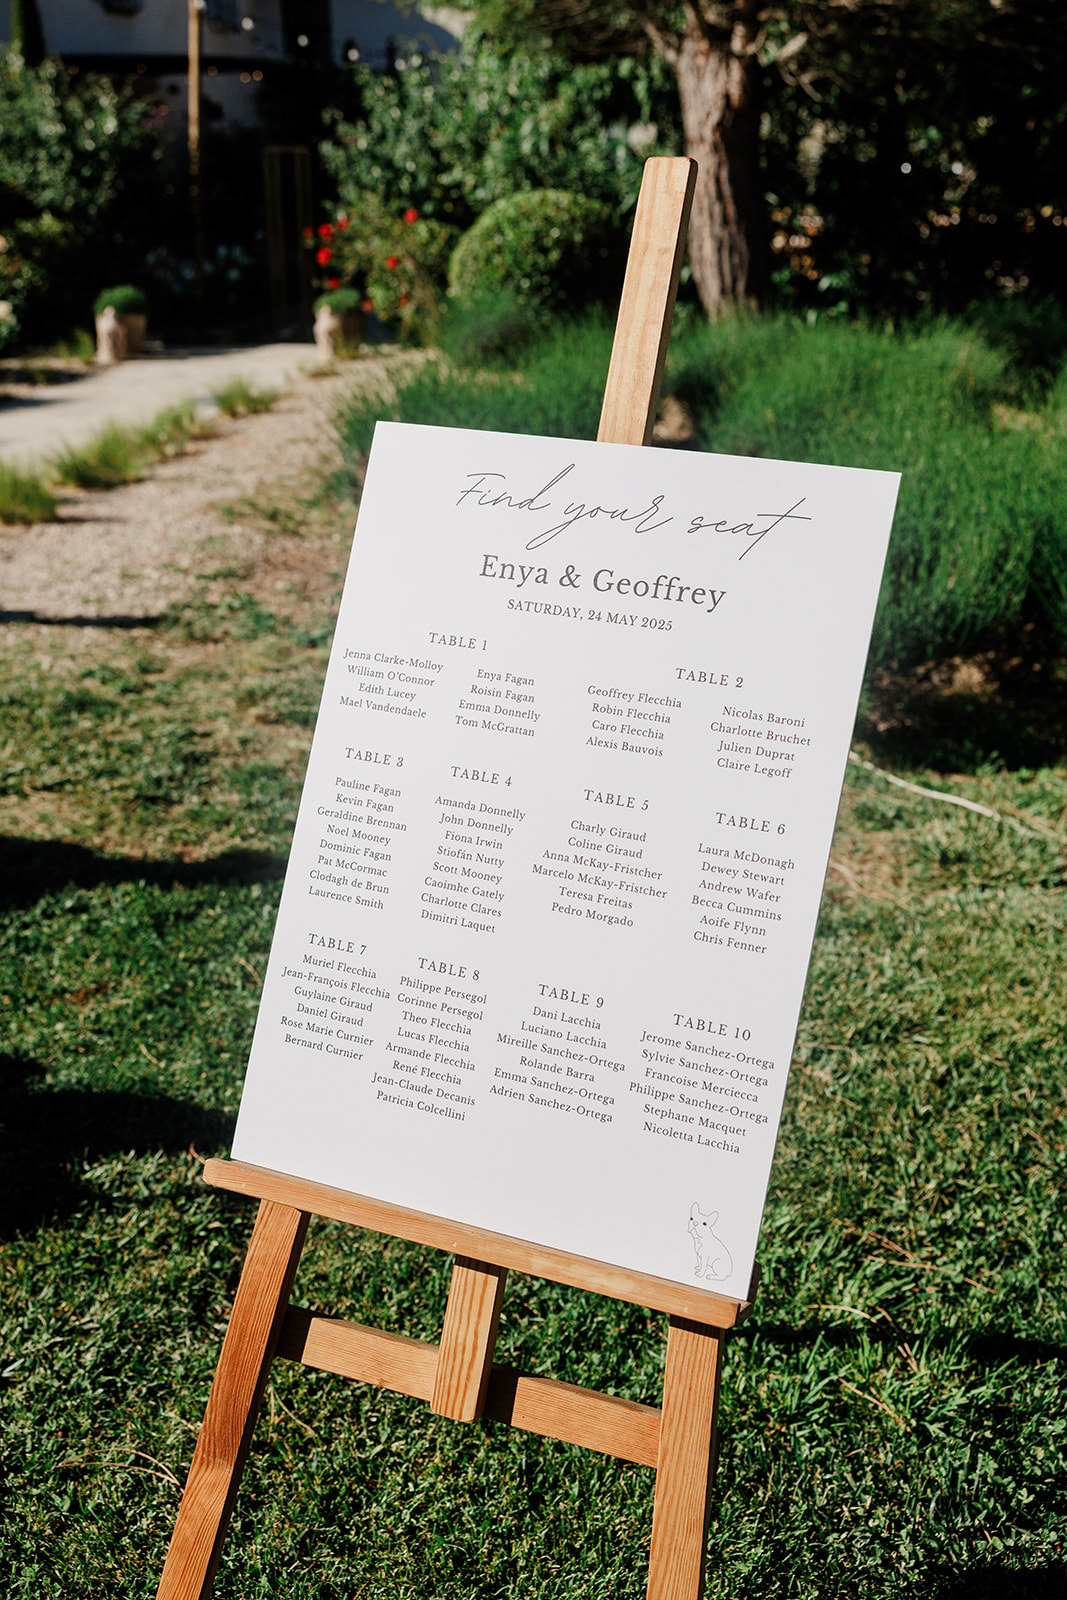 Find your seat
Enya & Geoffrey
SATURDAY, 24 MAY 2025
TABLE 1
Jenna Clarke-Molloy
William O'Connor
Edith Lucey
Mael Vandendaele
Enya Fagan
Roisin Fagan
Emma Donnelly
Tom McGrattan
TABLE 2
Geoffrey Flecchia
Robin Flecchia
Caro Flecchia
Alexis Bauvois
Nicolas Baroni
Charlotte Bruchet
Julien Duprat
Claire Legoff
TABLE 3
Pauline Fagan
Kevin Fagan
Geraldine Brennan
Noel Mooney
Dominic Fagan
Pat McCormac
Clodagh de Brun
Laurence Smith
TABLE 4
Amanda Donnelly
John Donnelly
Fiona Irwin
Stiofán Nutty
Scott Mooney
Caoimhe Gately
Charlotte Clares
Dimitri Laquet
TABLE 5
Charly Giraud
Coline Giraud
Anna McKay-Fristcher
Marcelo McKay-Fristcher
Teresa Freitas
Pedro Morgado
TABLE 6
Laura McDonagh
Dewey Stewart
Andrew Wafer
Becca Cummins
Aoife Flynn
Chris Fenner
TABLE 7
Muriel Flecchia
Jean-François Flecchia
Guylaine Giraud
Daniel Giraud
Rose Marie Curnier
Bernard Curnier
TABLE 8
Philippe Persegol
Corinne Persegol
Theo Flecchia
Lucas Flecchia
Armande Flecchia
René Flecchia
Jean-Claude Decanis
Patricia Colcellini
TABLE 9
Dani Lacchia
Luciano Lacchia
Mireille Sanchez-Ortega
Rolande Barra
Emma Sanchez-Ortega
Adrien Sanchez-Ortega
TABLE 10
Jerome Sanchez-Ortega
Sylvie Sanchez-Ortega
Francoise Merciecca
Philippe Sanchez-Ortega
Stephane Macquet
Nicoletta Lacchia